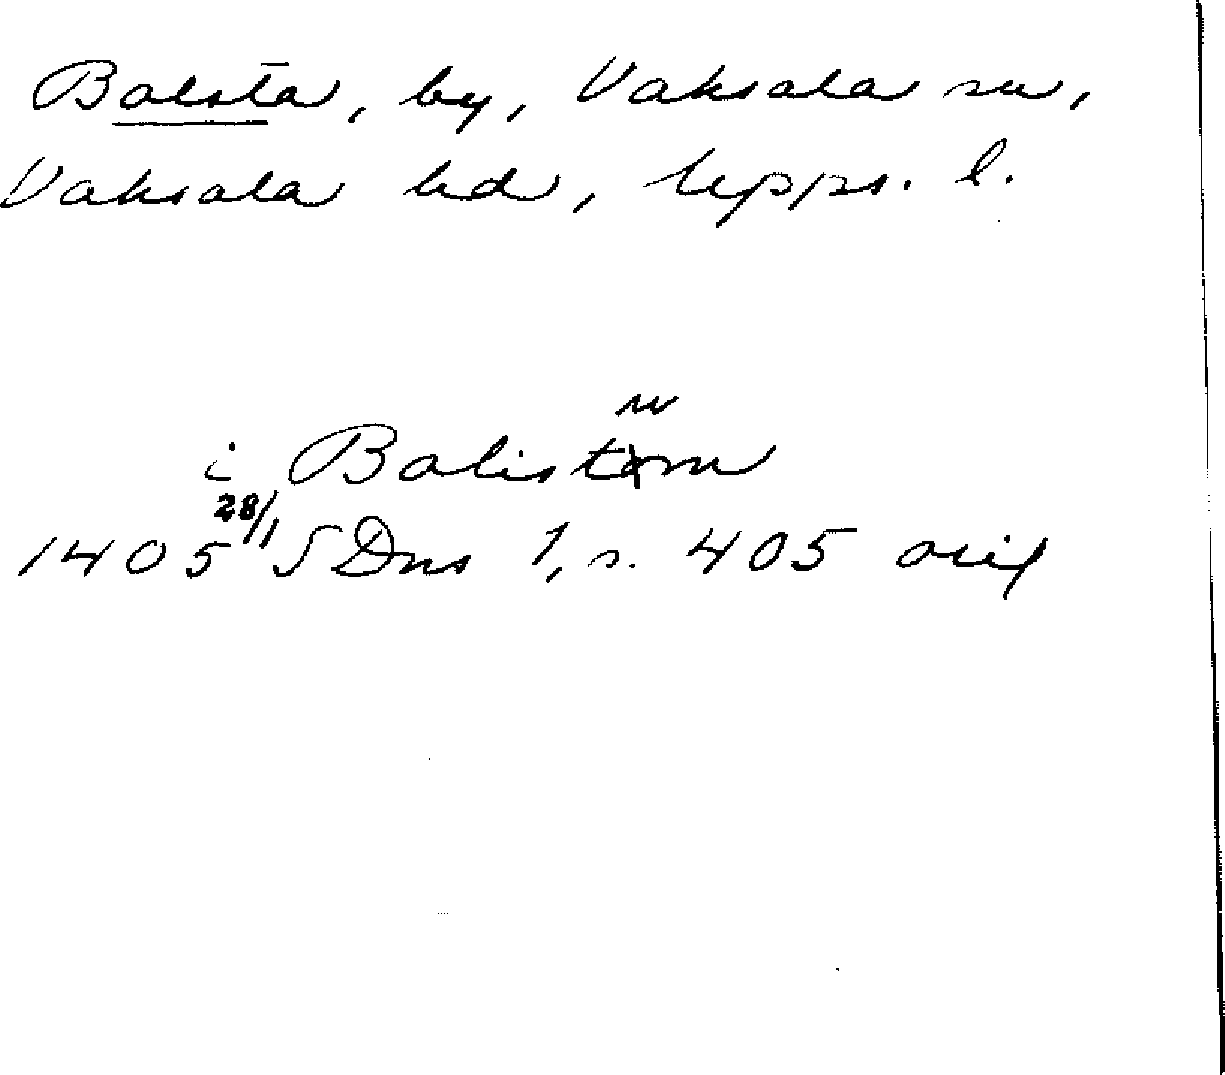 Bälsta, by, Vaksala sn,
Vaksala hd, Upps. l.
i Balistum
1405 28/1 SDns 1, s. 405 orig